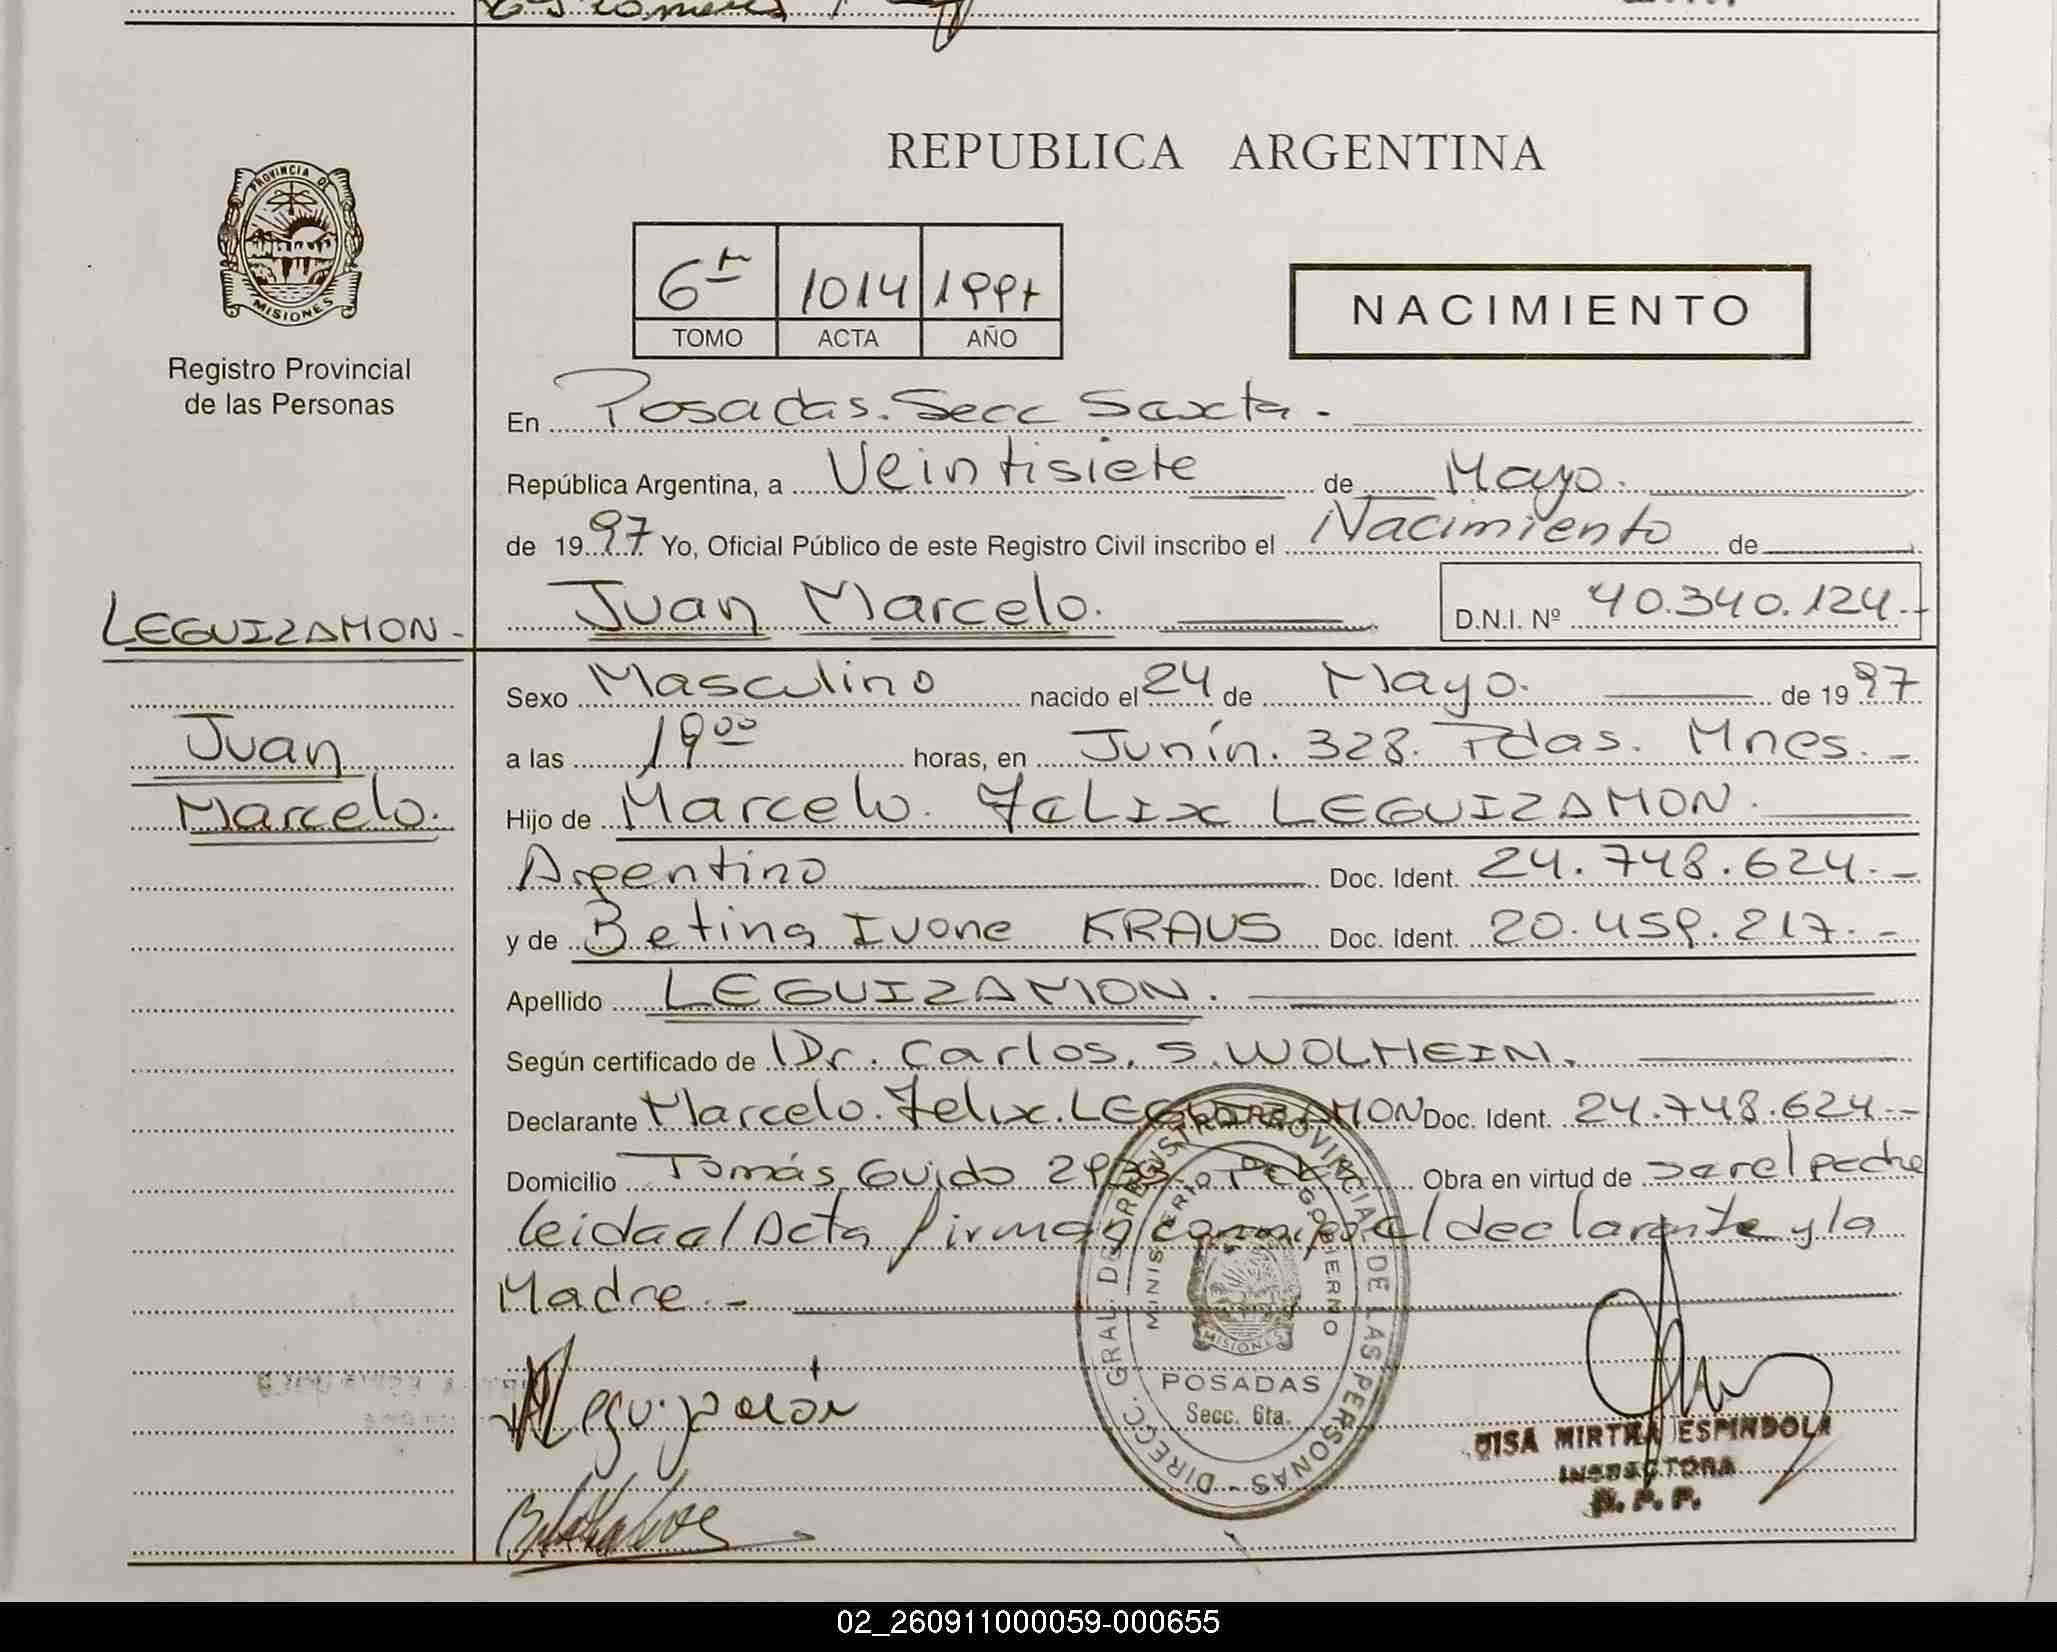 REPUBLICA ARGENTINA
PROVINCIA DE
MISIONES
Registro Provincial
de las Personas
6to 1014 1997
TOMO ACTA AÑO
NACIMIENTO
En Posadas. Secc Sexta.
República Argentina, a Veintisiete de Mayo.
de 1997 Yo, Oficial Público de este Registro Civil inscribo el Nacimiento de
LEGUIZAMON.-
Juan Marcelo. D.N.I. Nº 40.340.124.-
Juan
Marcelo.
Sexo Masculino nacido el 24 de Mayo. de 1997
a las 19 00 horas, en Junín. 328. Pdas. Mnes. -
Hijo de Marcelo. Felix LEGUIZAMON.
Argentino Doc. Ident. 24.748.624.-
y de Betina Ivone KRAUS Doc. Ident. 20.459.217.-
Apellido LEGUIZAMON.
Según certificado de Dr. Carlos. S. WOLHEIN.
Declarante Marcelo. Felix. LEGUIZAMON Doc. Ident. 24.748.624.-
Domicilio Tomás Guido Obra en virtud de ser el padre
leida el Acta firman conmigo el declarante y la
Madre.-
Leguizamón
DIRECC. GRAL. DE REGISTRO PROVINCIAL DE LAS PERSONAS -
MINISTERIO DE GOBIERNO
MISIONES
POSADAS
Secc. 6ta.
MIRTHA ESPINDOLA
INSPECTORA
R. P. P.
02_260911000059-000655